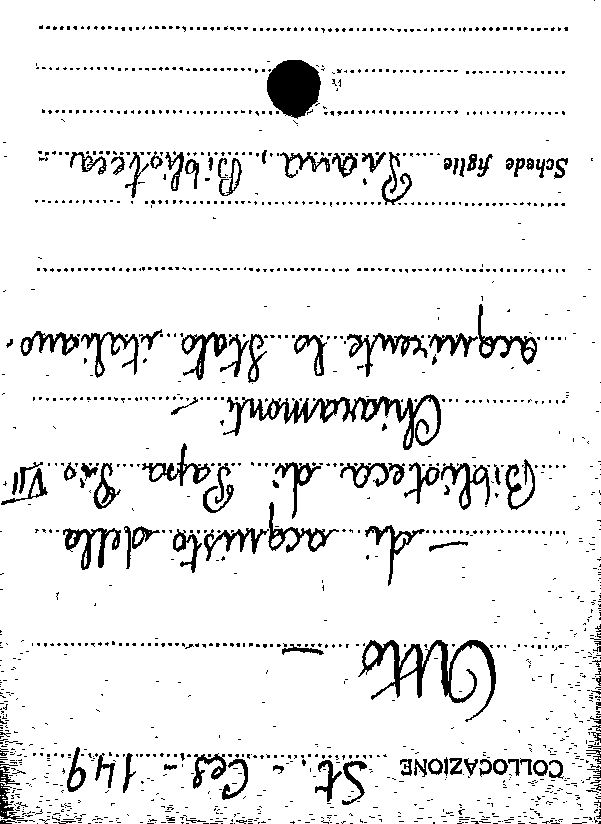 COLLOCAZIONE St. - Ces. - 149
Atto -
- di acquisto della
Biblioteca di Papa Pio VII
Chiaramonti -
acquirente lo Stato italiano.
Schede figlie Piana, Biblioteca -